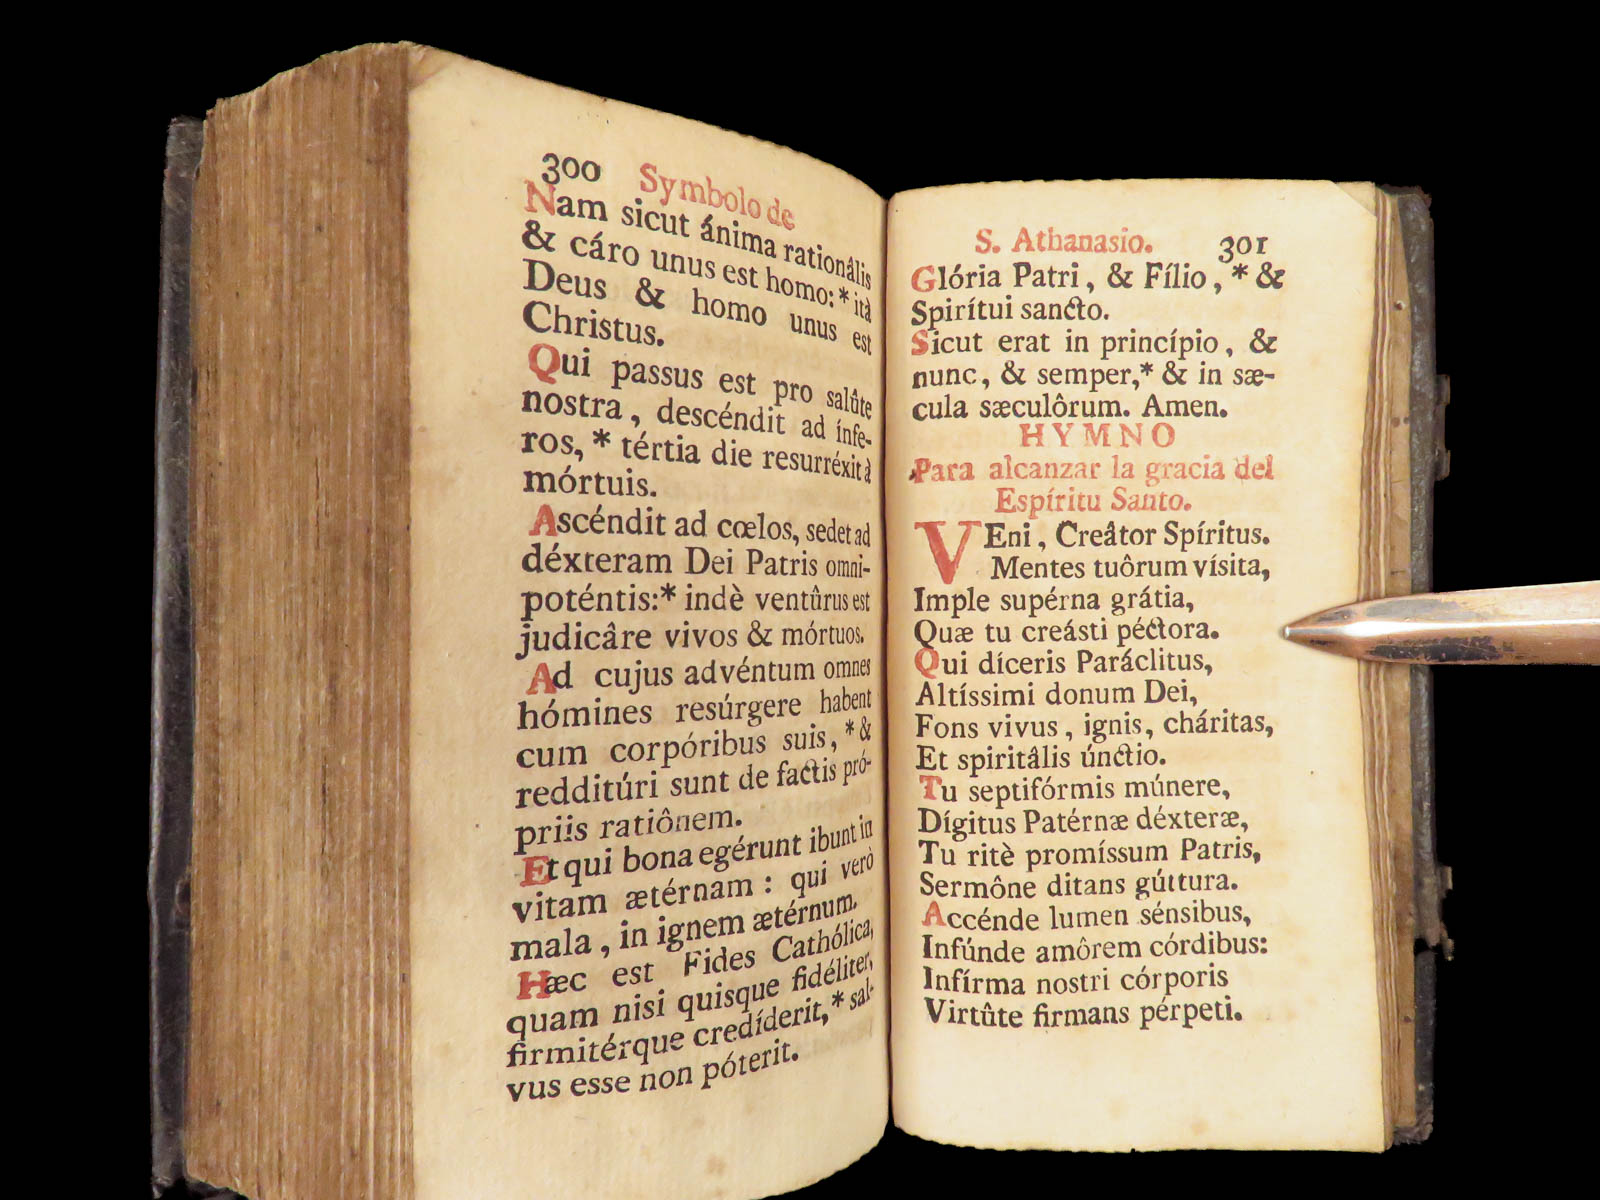 300 Symbolo de
Nam sicut ánima rationâlis
& cáro unus est homo: * ità
Deus & homo unus est
Christus.
Qui passus est pro salûte
nostra, descéndit ad ínfe-
ros, * tértia die resurréxit à
mórtuis.
Ascéndit ad cœlos, sedet ad
déxteram Dei Patris omni-
poténtis:* indè ventûrus est
judicâre vivos & mórtuos.
Ad cujus advéntum omnes
hómines resúrgere habent
cum corpóribus suis, * &
redditúri sunt de factis pró-
priis ratiônem.
Et qui bona egérunt ibunt in
vitam ætérnam : qui verò
mala, in ignem ætérnum.
Hæc est Fides Cathólica,
quam nisi quisque fidéliter,
firmitérque credíderit, * sal-
vus esse non póterit.
S. Athanasio. 301
Glória Patri, & Fílio, * &
Spirítui sancto.
Sicut erat in princípio, &
nunc, & semper,* & in sæ-
cula sæculôrum. Amen.
HYMNO
Para alcanzar la gracia del
Espíritu Santo.
VEni, Creâtor Spíritus.
Mentes tuôrum vísita,
Imple supérna grátia,
Quæ tu creásti péctora.
Qui díceris Paráclitus,
Altíssimi donum Dei,
Fons vivus, ignis, cháritas,
Et spiritâlis únctio.
Tu septifórmis múnere,
Dígitus Patérnæ déxteræ,
Tu ritè promíssum Patris,
Sermône ditans gúttura.
Accénde lumen sénsibus,
Infúnde amôrem córdibus:
Infírma nostri córporis
Virtûte firmans pérpeti.